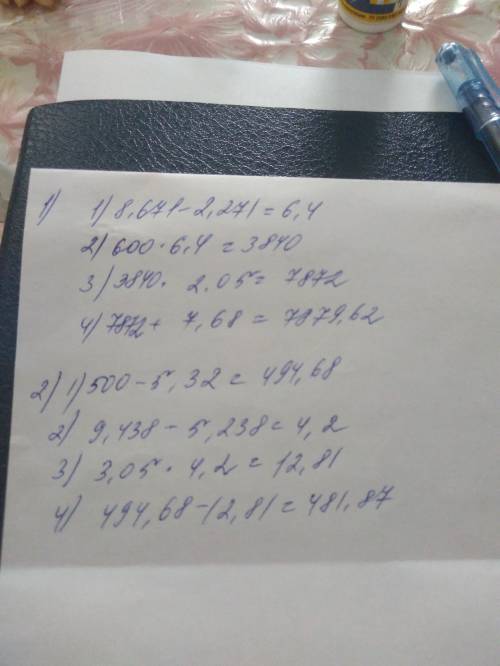 1) 1) 8,671-2,271=6,4
2) 600·6,4=3840
3) 3840· 2.05= 7872
4) 7872+ 7,68 = 7879,62
2) 1) 500-5,32=494,68
2) 9,438-5,238=4,2
3) 3,05·4,2=12,81
4) 494,68-12,81=481,87